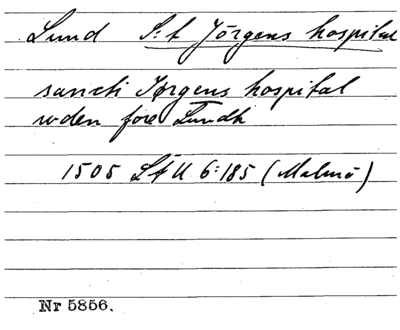 Lund S:t Jörgens hospital
sancti Jørgens hospital
wden fore Lundh
1505 LÄU 6:185 (Malmö)
Nr 5856.